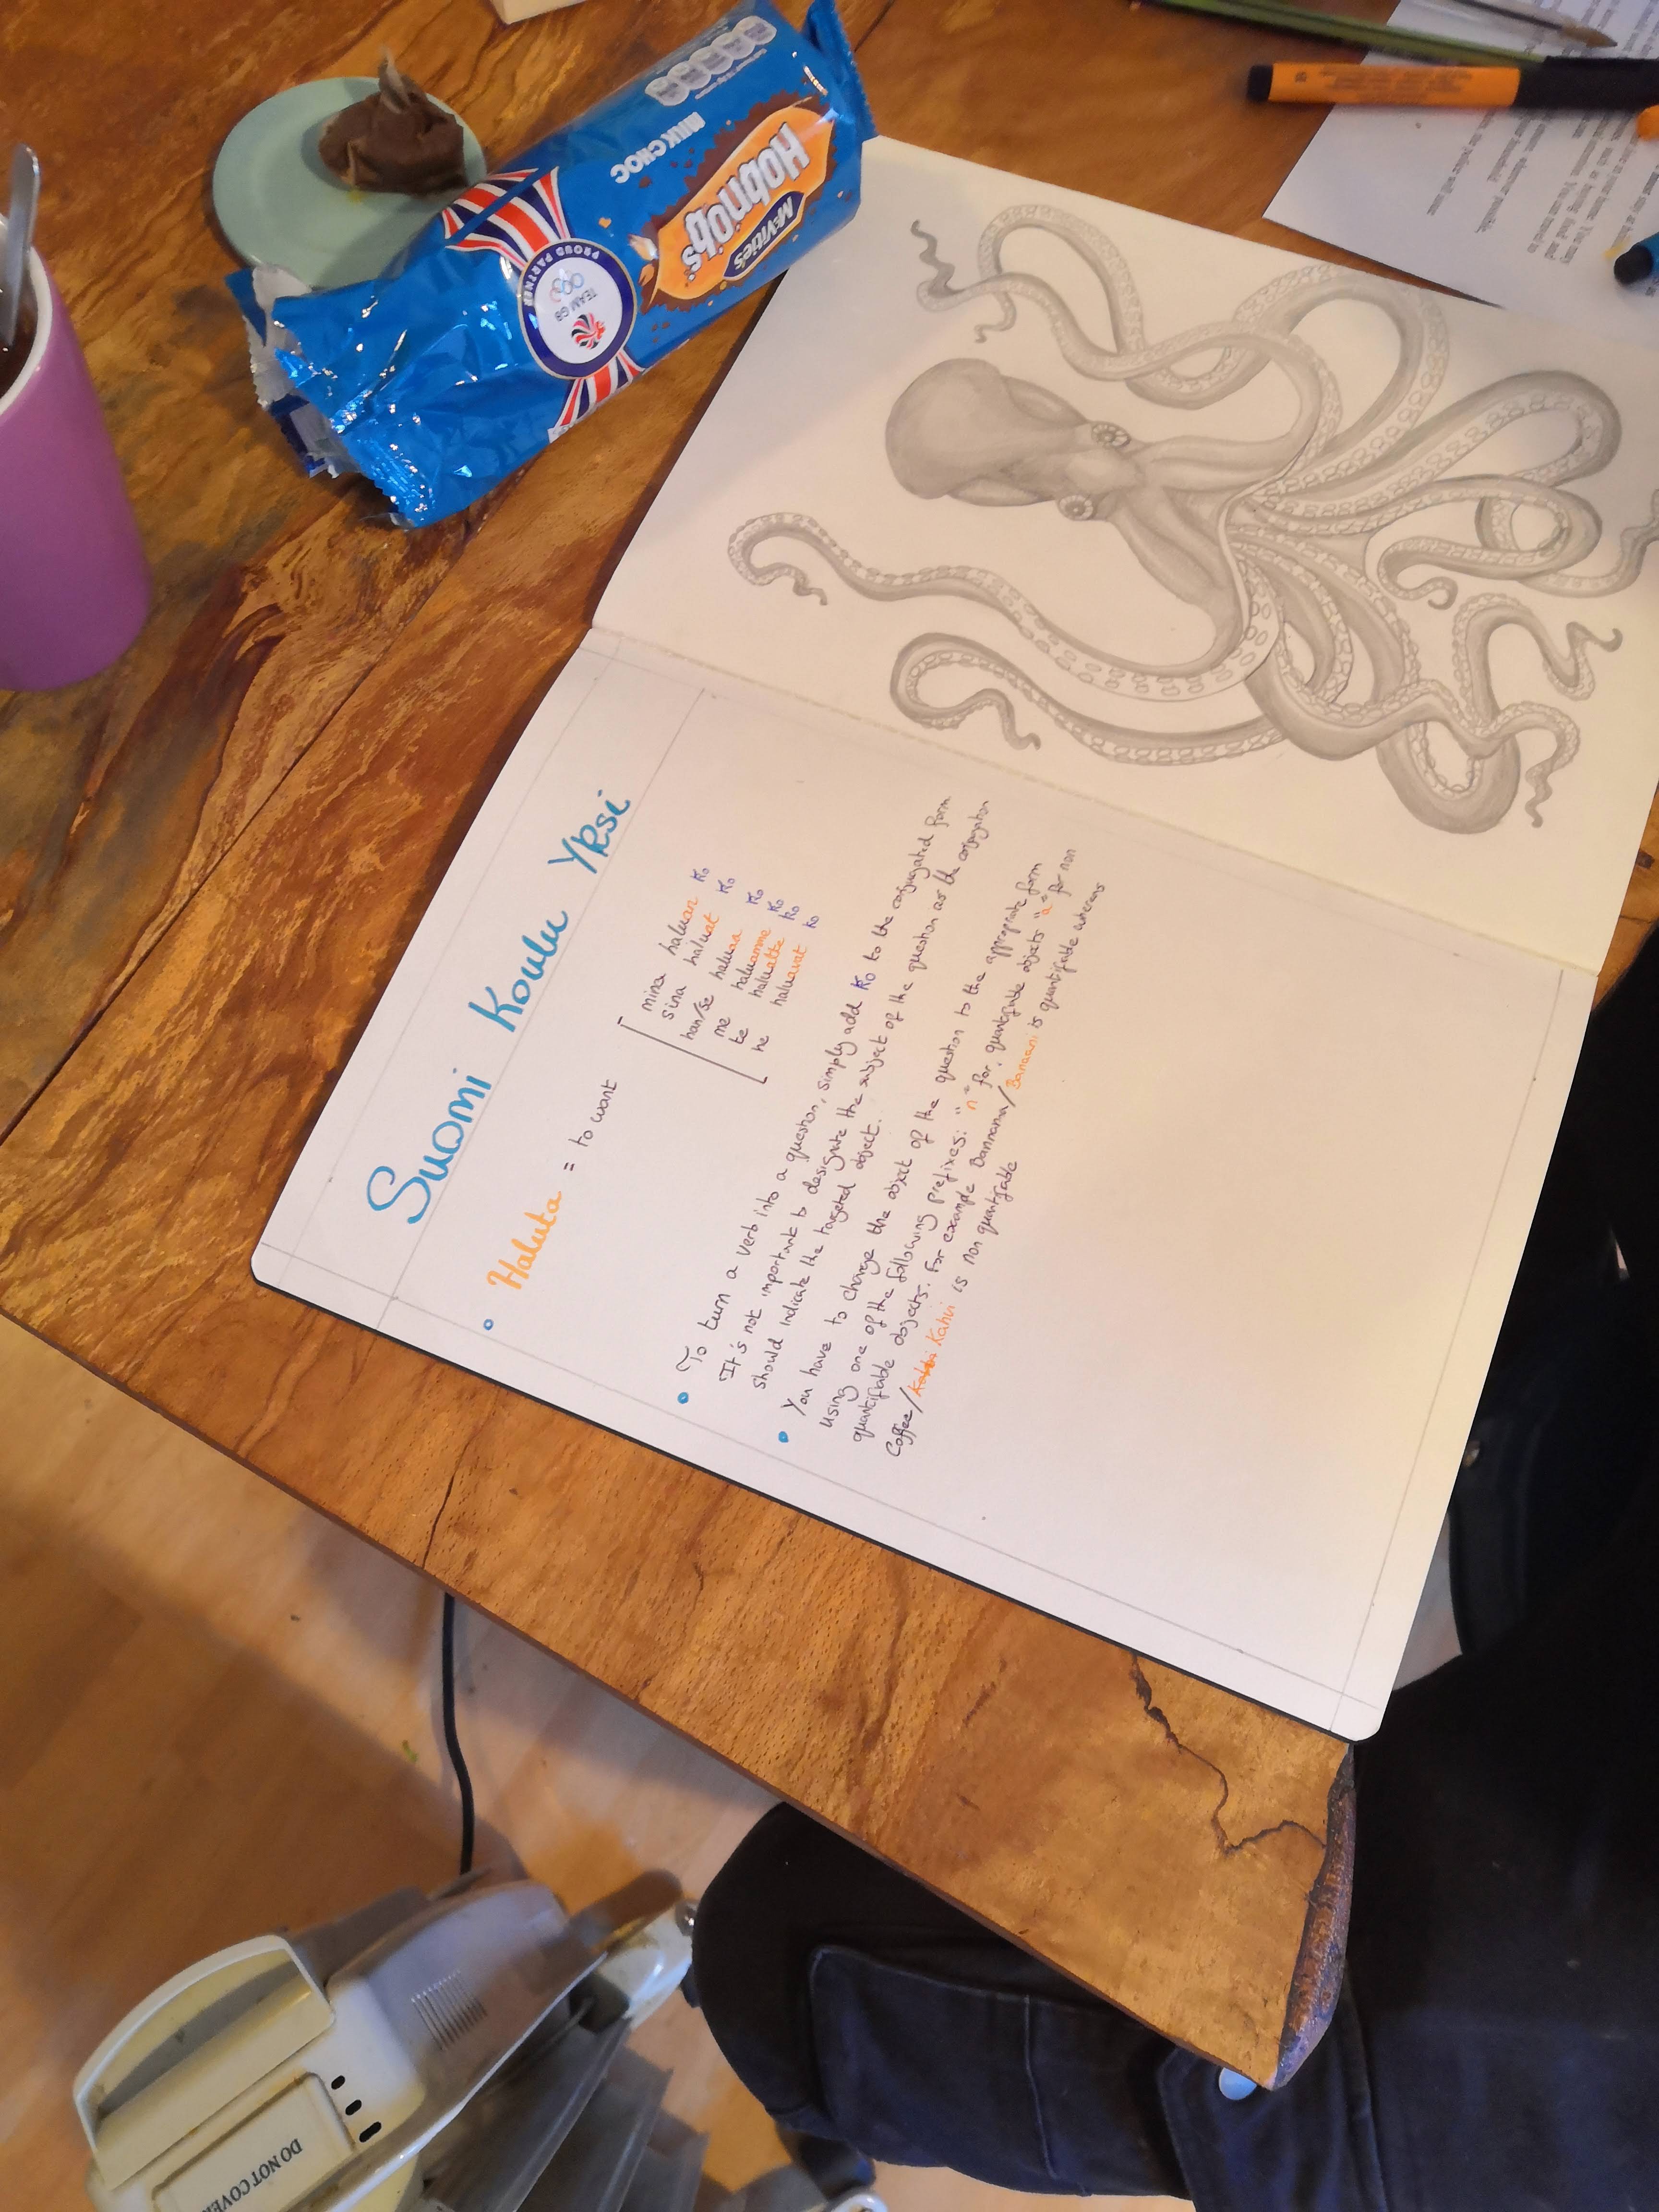 Suomi Koulu Yksi
Haluta = to want
mina haluan ko
sina haluat ko
han/se haluaa ko
me haluamme ko
te haluatte ko
he haluavat ko
To turn a verb into a question, simply add ko to the conjugated form
It's not important to designate the subject of the question as the conjugation
should indicate the targeted object.
You have to change the object of the question to the appropriate form
using one of the following prefixes: "n" for quantifiable objects "a" for non
quantifiable objects. For example Bannana/Banaani is quantifiable whereas
Coffee/Kahvi is non quantifiable
McVitie's
Hobnobs
MILK CHOC
PROUD PARTNER
TEAM GB
DO NOT COVER